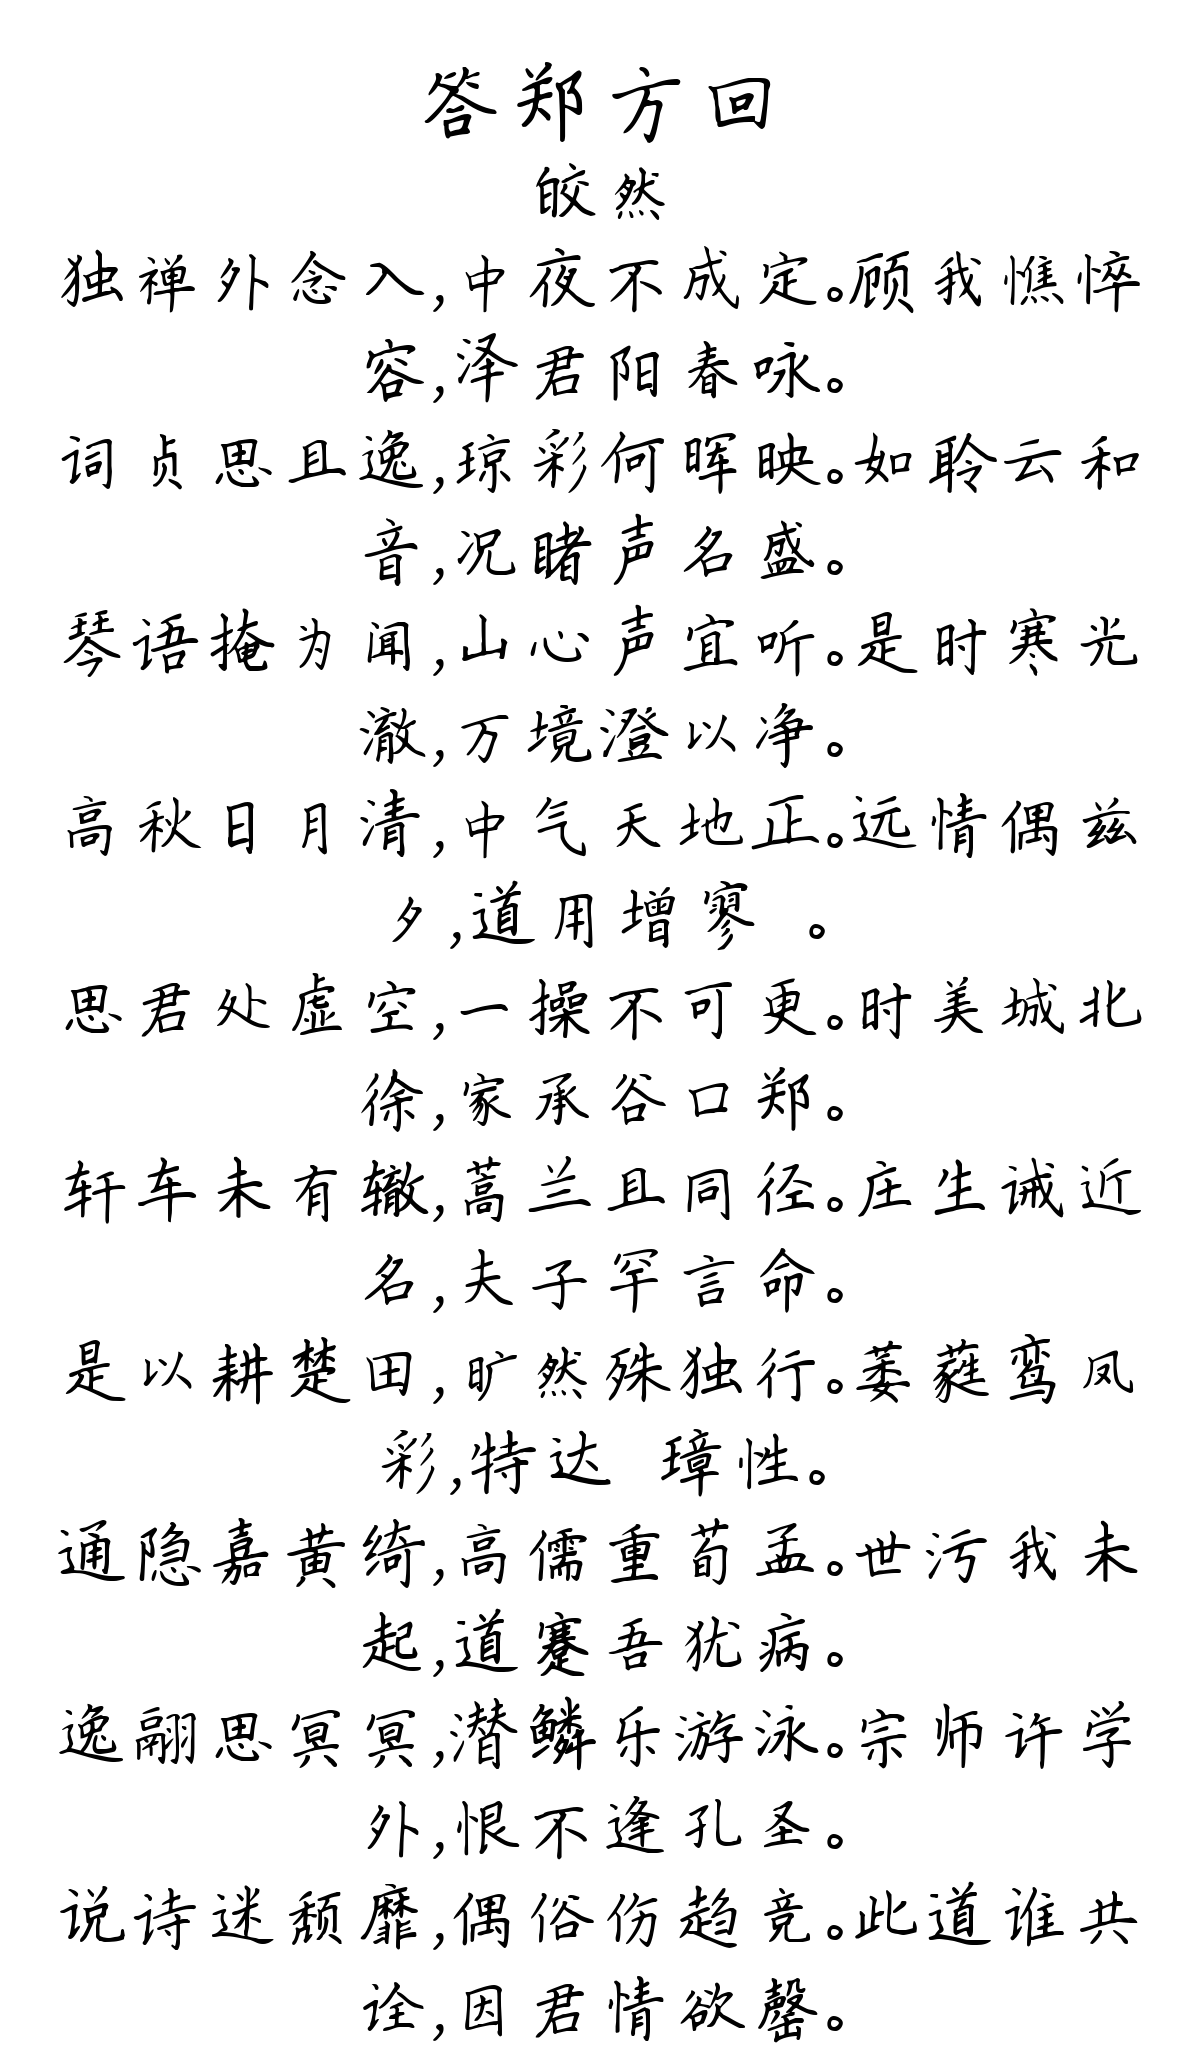 答郑方回
皎然
独禅外念入,中夜不成定。顾我憔悴
容,泽君阳春咏。
词贞思且逸,琼彩何晖映。如聆云和
音,况睹声名盛。
琴语掩为闻,山心声宜听。是时寒光
澈,万境澄以净。
高秋日月清,中气天地正。远情偶兹
夕,道用增寥 。
思君处虚空,一操不可更。时美城北
徐,家承谷口郑。
轩车未有辙,蒿兰且同径。庄生诫近
名,夫子罕言命。
是以耕楚田,旷然殊独行。萎蕤鸾凤
彩,特达 璋性。
通隐嘉黄绮,高儒重荀孟。世污我未
起,道蹇吾犹病。
逸翮思冥冥,潜鳞乐游泳。宗师许学
外,恨不逢孔圣。
说诗迷颓靡,偶俗伤趋竞。此道谁共
诠,因君情欲罄。